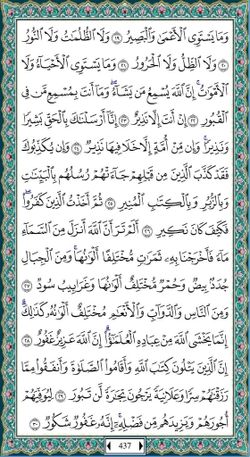 وَمَا يَسْتَوِي الْأَعْمَىٰ وَالْبَصِيرُ ۝١٩ وَلَا الظُّلُمَاتُ وَلَا النُّورُ
۝٢٠ وَلَا الظِّلُّ وَلَا الْحَرُورُ ۝٢١ وَمَا يَسْتَوِي الْأَحْيَاءُ وَلَا
الْأَمْوَاتُ ۚ إِنَّ اللَّهَ يُسْمِعُ مَن يَشَاءُ ۖ وَمَا أَنتَ بِمُسْمِعٍ مَّن فِي
الْقُبُورِ ۝٢٢ إِنْ أَنتَ إِلَّا نَذِيرٌ ۝٢٣ إِنَّا أَرْسَلْنَاكَ بِالْحَقِّ بَشِيرًا
وَنَذِيرًا ۚ وَإِن مِّنْ أُمَّةٍ إِلَّا خَلَا فِيهَا نَذِيرٌ ۝٢٤ وَإِن يُكَذِّبُوكَ
فَقَدْ كَذَّبَ الَّذِينَ مِن قَبْلِهِمْ جَاءَتْهُمْ رُسُلُهُم بِالْبَيِّنَاتِ
وَبِالزُّبُرِ وَبِالْكِتَابِ الْمُنِيرِ ۝٢٥ ثُمَّ أَخَذْتُ الَّذِينَ كَفَرُوا ۖ
فَكَيْفَ كَانَ نَكِيرِ ۝٢٦ أَلَمْ تَرَ أَنَّ اللَّهَ أَنزَلَ مِنَ السَّمَاءِ
مَاءً فَأَخْرَجْنَا بِهِ ثَمَرَاتٍ مُّخْتَلِفًا أَلْوَانُهَا ۚ وَمِنَ الْجِبَالِ
جُدَدٌ بِيضٌ وَحُمْرٌ مُّخْتَلِفٌ أَلْوَانُهَا وَغَرَابِيبُ سُودٌ ۝٢٧
وَمِنَ النَّاسِ وَالدَّوَابِّ وَالْأَنْعَامِ مُخْتَلِفٌ أَلْوَانُهُ كَذَٰلِكَ ۗ
إِنَّمَا يَخْشَى اللَّهَ مِنْ عِبَادِهِ الْعُلَمَاءُ ۗ إِنَّ اللَّهَ عَزِيزٌ غَفُورٌ ۝٢٨
إِنَّ الَّذِينَ يَتْلُونَ كِتَابَ اللَّهِ وَأَقَامُوا الصَّلَاةَ وَأَنفَقُوا مِمَّا
رَزَقْنَاهُمْ سِرًّا وَعَلَانِيَةً يَرْجُونَ تِجَارَةً لَّن تَبُورَ ۝٢٩ لِيُوَفِّيَهُمْ
أُجُورَهُمْ وَيَزِيدَهُم مِّن فَضْلِهِ ۚ إِنَّهُ غَفُورٌ شَكُورٌ ۝٣٠
437